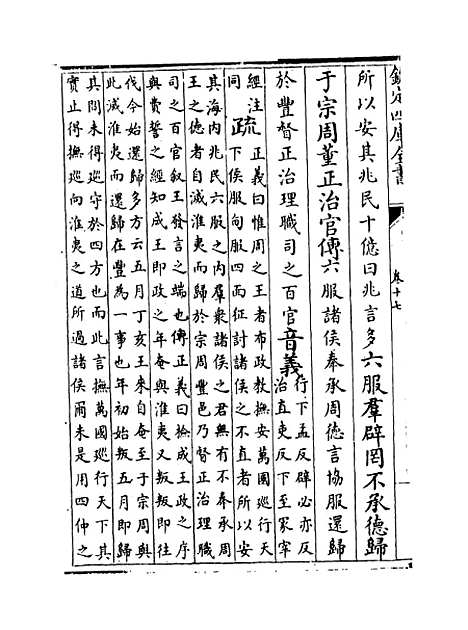 欽定四庫全書
卷十七
所以安其兆民十億曰兆言多六服羣辟罔不承德歸
于宗周董正治官傳六服諸侯奉承周德言協服還歸
於豐督正治理職司之百官音義行下孟反辟必亦反
治直吏反下至冢宰
經注
同
疏正義曰惟周之王者布政教撫安萬國巡行天
下侯服甸服四面征討諸侯之不直者所以安
其海内兆民六服之内羣衆諸侯之君無有不奉承周
王之德者自滅淮夷而歸於宗周豐邑乃督正治理職
司之百官叙王發言之端也傳正義曰檢成王政之序
與費誓之經知成王即政之年奄與淮夷又叛叛即往
伐今始還歸多方云五月丁亥王來自奄至于宗周與
此滅淮夷而還歸在豐為一事也年初始叛五月即歸
其間未得巡守於四方也而此言撫萬國巡行天下其
實止得撫巡向淮夷之道所過諸侯爾未是用四仲之